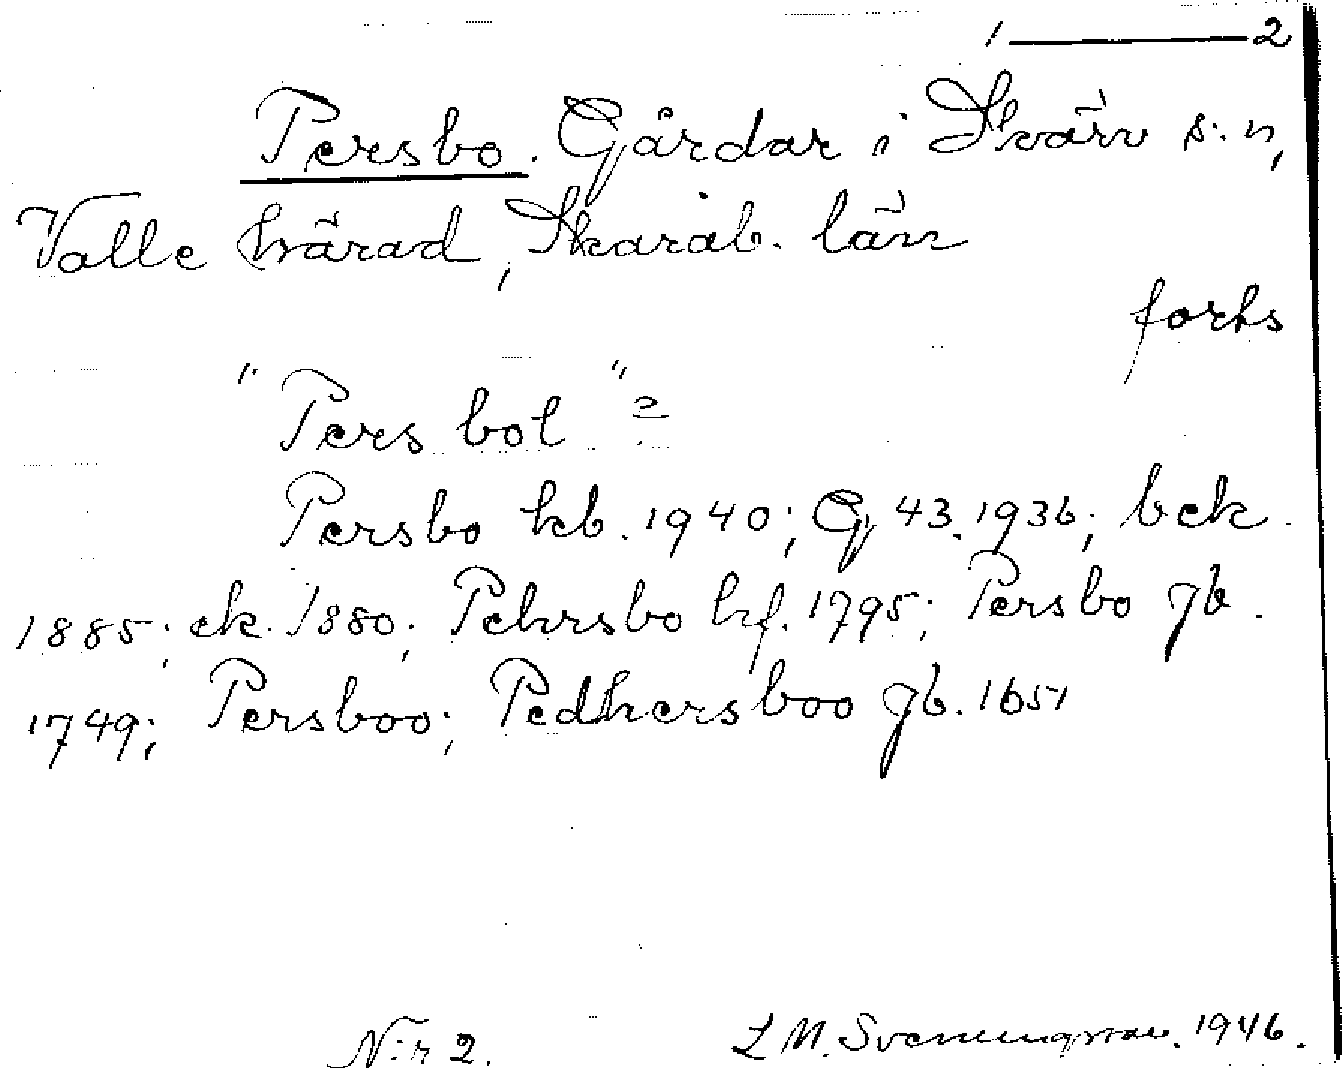 1 — 2
Persbo. Gårdar i Skärv s:n,
Valle härad, Skarab. län
forts
"Persbol" =
Persbo kb. 1940; G 43. 1936; bek.
1885; ek. 1880; Pehrsbo hf. 1795; Persbo gb.
1749; Persboo; Pedhersboo gb. 1651
N:r 2. L M. Svenungsson. 1946.